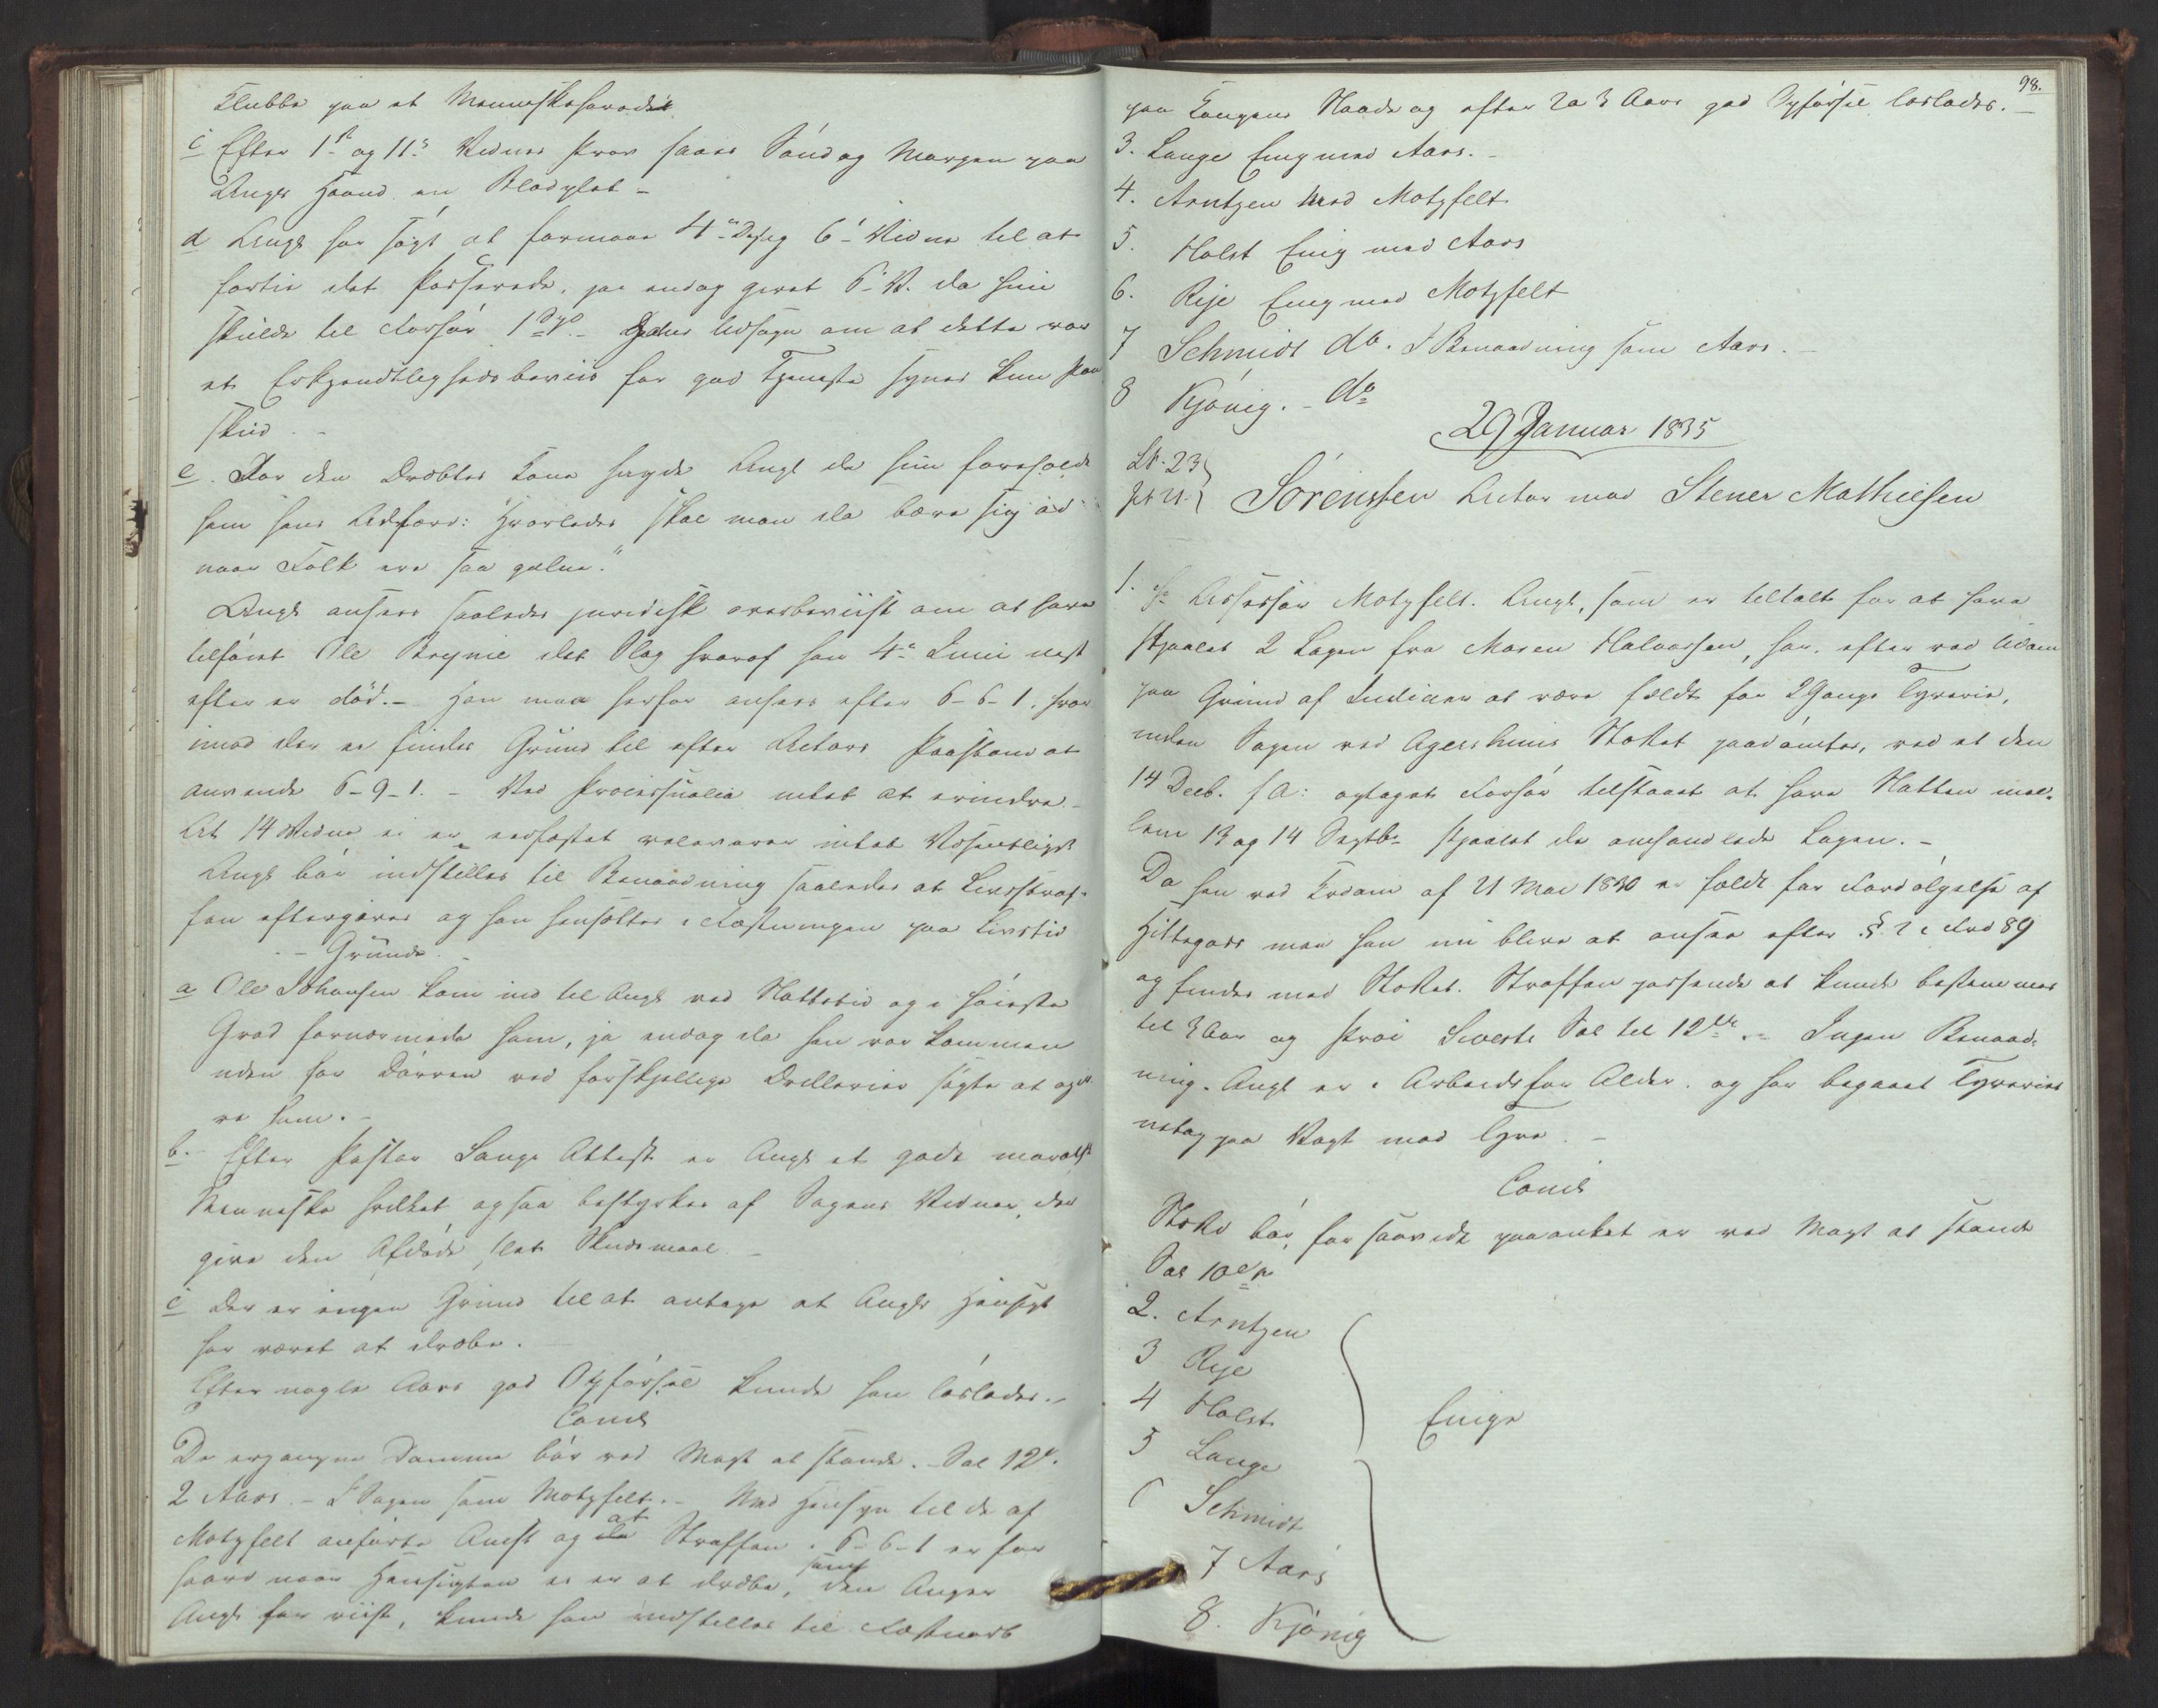 Klubbe paa et Menneskehoved
c Efter 1ste og 11te Vidnes Prov saaes Søndag Morgen paa
Angks Haand en Blodplet –
d Angk har søgt at formaae 4de og 6te Vidne til at
fortie det Passerede, ja endog givet 6te V. da hun
skulde til Forhør 1 Spd. Hans Udsagn om at dette var
et Erkjendtlighedsbeviis for god Tjeneste synes kun Paa
skud. –
e. Før den Dræbtes Kone sagde Angk da hun foreholdt
ham hans Adfærd: "Hvorledes skal man da bære sig ad
naar Folk ere saa galne."
Angk ansees saaledes juridisk overbeviist om at have
tilføiet Ole Brynie det Slag hvoraf han 4de Juni næst
efter er død. – Han maa herfor ansees efter 6-6-1. hvor
imod der ei findes Grund til efter Actors Paastand at
anvende 6-9-1. – Ved Processualia intet at erindre –
At 14 Vidne ei er eedfæstet releverer intet Væsentligt
Angk bør indstilles til Benaadning saaledes at Livsstraf-
fen eftergives og han hensættes i Fæstningen paa Livstid
– Grunde. –
a Ole Johansen kom ind til Angk ved Nattetid og i høieste
Grad fornærmede ham, ja endog da han var kommen
uden for Døren ved forskjellige Drillerier søgte at
re ham. –
b. Efter Pastor Lange Attest er Angk et godt moralsk
Menneske hvilket ogsaa bestyrkes af Sagens Vidner, der
give den Afdøde slet Skudsmaal –
c Der er ingen Grund til at antage at Angks Hensigt
har været at dræbe.
Efter nogle Aars god Opførsel kunde han løslades. –
Concl
De ergangne Domme bør ved Magt at stande. – Sal 12
2 Aars. – I Sagen som Motzfelt. – Med Hensyn til de af
Motzfelt anførte Omst og at Straffen i 6-6-1 er for
haard naar Hensigten ei er at dræbe, samt den Anger
Angk har viist, kunde han indstilles til Fæstnarb
98.
paa Kongens Naade og efter 2 a 3 Aars god Opførsel løslades. –
3. Lange Enig med Aars. –
4. Arntzen med Motzfelt
5. Holst Enig med Aars
6. Rije Enig med Motzfelt
7 Schmidt do. I Benaadning som Aars. –
8 Kjønig. – do
29 Januar 1835
L. 23
Sørenssen Actor mod Stener Mathiesen
1. Hr Assessor Motzfelt. Angk, som er tiltalt for at have
stjaalet 2 Lagen fra Maren Halvorsen, har, efter ved Udom
paa Grund af Indicier at være fældt for 2 Gange Tyverie,
inden Sagen ved Agershuus StOret paadømtes, ved et den
14 Decb. f A: optaget Forhør tilstaaet at have Natten mel-
lem 13 og 14 Septbr stjaalet de omhandlede Lagen. –
Da han ved Dom af 21 Mai 1830 er fældt for Fordølgelse af
Hittegods maa han nu blive at ansee efter §. 2 i Frd 89
og findes med StOret. Straffen passende at kunde bestemmes
til 3 Aar og Proc Livests Sal til 12. – Ingen Benaad-
ning. Angk er i Arbeidsfør Alder. og har begaaet Tyveriet
netop paa Vagt mod Tyve. –
Concl
StOrd bør, for saavidt paaanket er ved Magt at stande
Sal 10
2. Arntzen
3 Rije
4 Holst
5 Lange
6 Schmidt
7 Aars
8. Kjønig
Enige